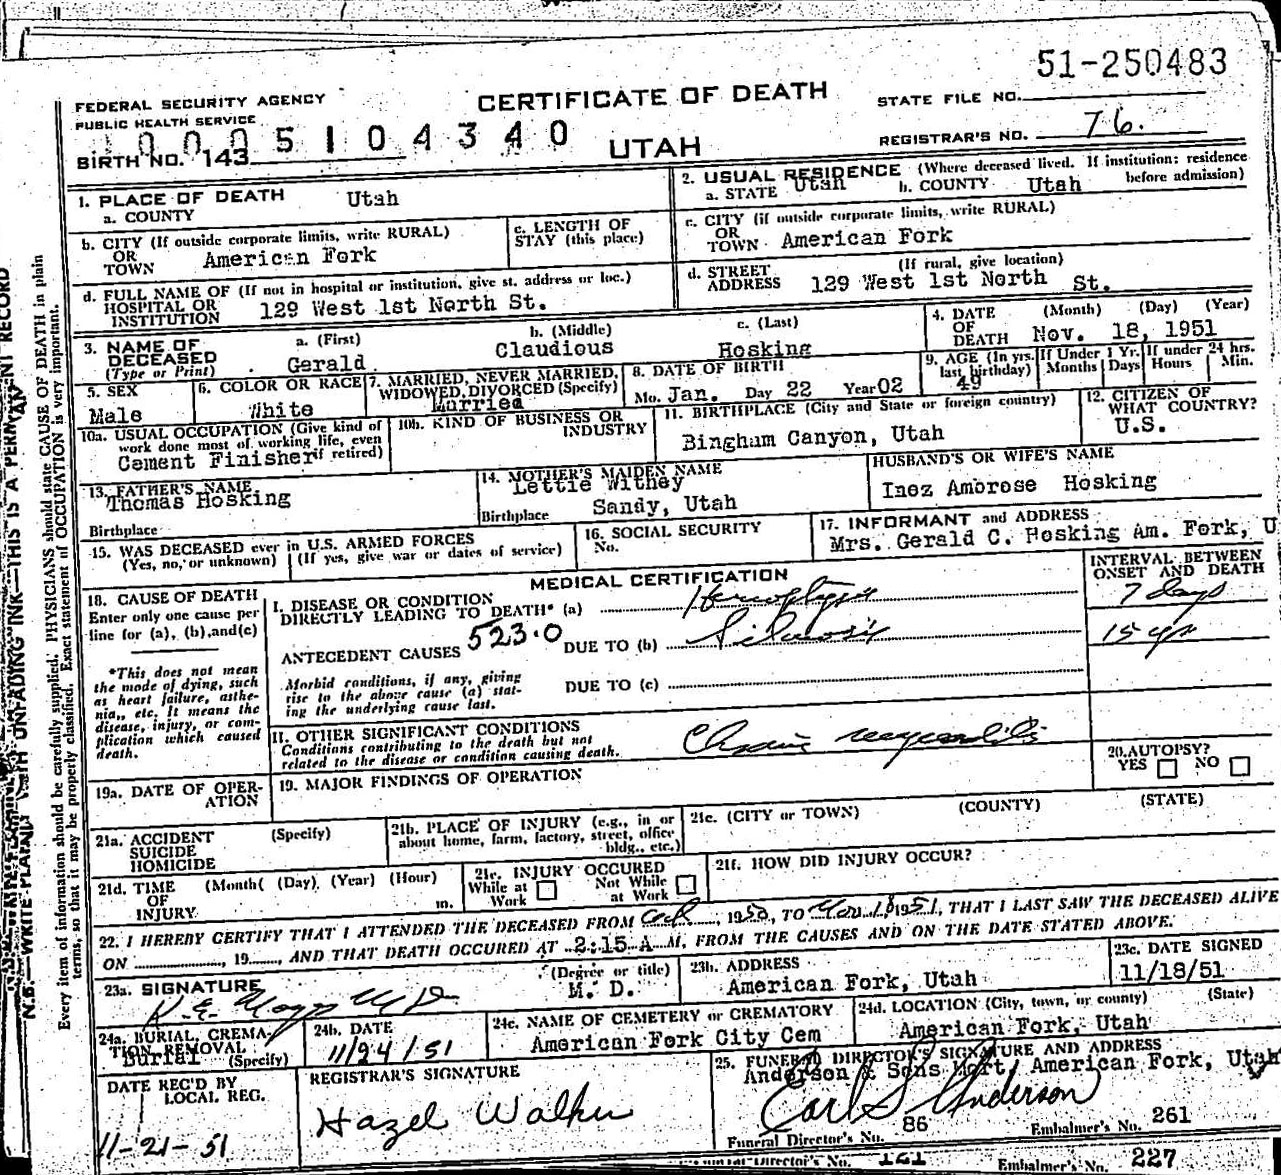 51-250483
FEDERAL SECURITY AGENCY
PUBLIC HEALTH SERVICE
CERTIFICATE OF DEATH
STATE FILE NO.
0005104340
BIRTH NO. 143
UTAH
REGISTRAR'S NO. 76.
1. PLACE OF DEATH Utah
a. COUNTY
2. USUAL RESIDENCE (Where deceased lived. If institution: residence before admission)
a. STATE Utah b. COUNTY Utah
b. CITY (If outside corporate limits, write RURAL)
OR
TOWN American Fork
c. LENGTH OF STAY (this place)
c. CITY (if outside corporate limits, write RURAL)
OR
TOWN American Fork
d. FULL NAME OF (If not in hospital or institution, give st. address or loc.)
HOSPITAL OR
INSTITUTION 129 West 1st North St.
d. STREET ADDRESS (If rural, give location)
129 West 1st North St.
3. NAME OF DECEASED
(Type or Print)
a. (First) Gerald
b. (Middle) Claudious
c. (Last) Hosking
4. DATE OF DEATH (Month) (Day) (Year)
Nov. 18, 1951
5. SEX
Male
6. COLOR OR RACE
White
7. MARRIED, NEVER MARRIED, WIDOWED, DIVORCED (Specify)
Married
8. DATE OF BIRTH
Mo. Jan. Day 22 Year 02
9. AGE (In yrs. last birthday)
49
If Under 1 Yr. Months Days
If under 24 hrs. Hours Min.
10a. USUAL OCCUPATION (Give kind of work done most of working life, even if retired)
Cement Finisher
10b. KIND OF BUSINESS OR INDUSTRY
11. BIRTHPLACE (City and State or foreign country)
Bingham Canyon, Utah
12. CITIZEN OF WHAT COUNTRY?
U.S.
13. FATHER'S NAME
Thomas Hosking
Birthplace
14. MOTHER'S MAIDEN NAME
Lettie Withey
Birthplace Sandy, Utah
HUSBAND'S OR WIFE'S NAME
Inez Ambrose Hosking
15. WAS DECEASED ever in U.S. ARMED FORCES
(Yes, no, or unknown) (If yes, give war or dates of service)
16. SOCIAL SECURITY No.
17. INFORMANT and ADDRESS
Mrs. Gerald C. Hosking Am. Fork, U
MEDICAL CERTIFICATION
INTERVAL BETWEEN ONSET AND DEATH
18. CAUSE OF DEATH
Enter only one cause per line for (a), (b), and (c)
I. DISEASE OR CONDITION
DIRECTLY LEADING TO DEATH* (a) Hemoptysis 7 days
ANTECEDENT CAUSES 523.0 DUE TO (b) Silicosis 15 yrs
*This does not mean the mode of dying, such as heart failure, asthenia, etc. It means the disease, injury, or complication which caused death.
Morbid conditions, if any, giving rise to the above cause (a) stating the underlying cause last.
DUE TO (c)
II. OTHER SIGNIFICANT CONDITIONS
Conditions contributing to the death but not related to the disease or condition causing death.
Chronic myocarditis
20. AUTOPSY?
YES NO
19a. DATE OF OPERATION
19. MAJOR FINDINGS OF OPERATION
21a. ACCIDENT (Specify)
SUICIDE
HOMICIDE
21b. PLACE OF INJURY (e.g., in or about home, farm, factory, street, office bldg., etc.)
21c. (CITY or TOWN) (COUNTY) (STATE)
21d. TIME OF INJURY (Month) (Day) (Year) (Hour) m.
21e. INJURY OCCURED
While at Work Not While at Work
21f. HOW DID INJURY OCCUR?
22. I HEREBY CERTIFY THAT I ATTENDED THE DECEASED FROM 1950, TO Nov. 18 1951, THAT I LAST SAW THE DECEASED ALIVE
ON , 19 , AND THAT DEATH OCCURED AT 2:15 A M, FROM THE CAUSES AND ON THE DATE STATED ABOVE.
23a. SIGNATURE (Degree or title)
M. D.
23b. ADDRESS
American Fork, Utah
23c. DATE SIGNED
11/18/51
24a. BURIAL, CREMATION, REMOVAL (Specify)
Burial
24b. DATE
11/24/51
24c. NAME OF CEMETERY or CREMATORY
American Fork City Cem
24d. LOCATION (City, town, or county) (State)
American Fork, Utah
DATE REC'D BY LOCAL REG.
11-21-51
REGISTRAR'S SIGNATURE
Hazel Walker
25. FUNERAL DIRECTOR'S SIGNATURE AND ADDRESS
Anderson & Sons Mort, American Fork, Utah
Earl S Anderson
Funeral Director's No. 86 Embalmer's No. 261
Director's No. 121 Embalmer's No. 227
N.B.—WRITE PLAINLY WITH UNFADING INK—THIS IS A PERMANENT RECORD
Every item of information should be carefully supplied. PHYSICIANS should state CAUSE OF DEATH in plain
terms, so that it may be properly classified. Exact statement of OCCUPATION is very important.